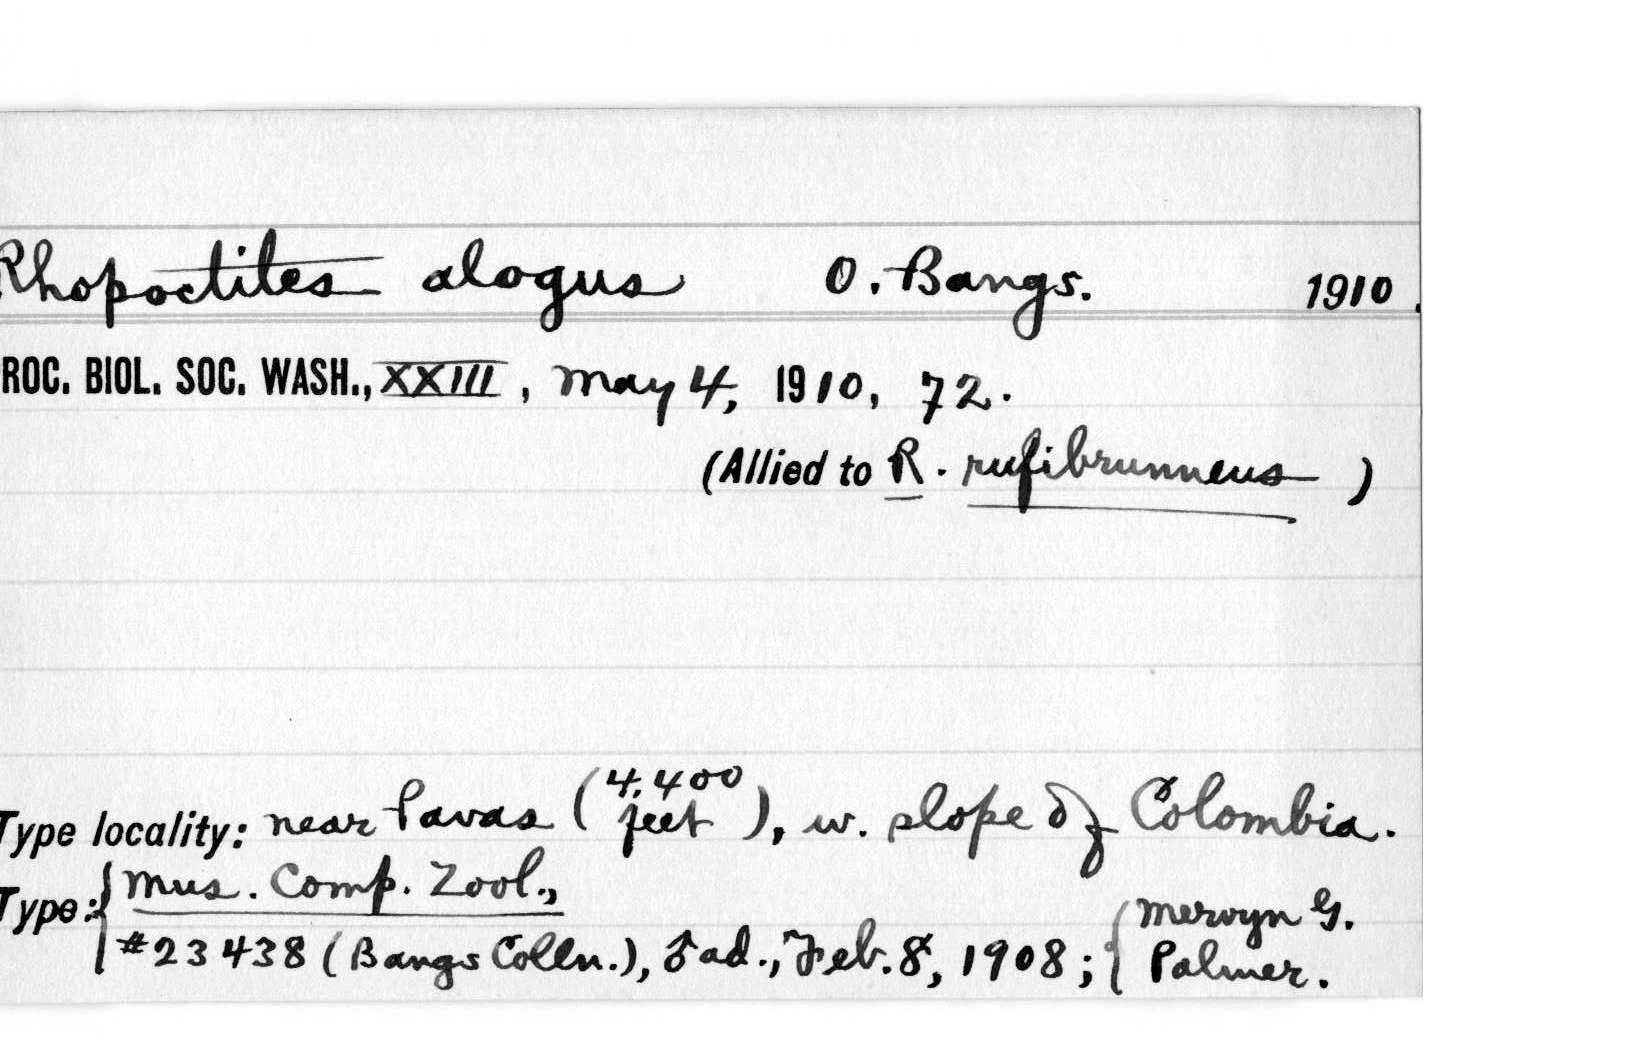 Rhopoctites alogus O. Bangs. 1910.
ROC. BIOL. SOC. WASH., XXIII, May 4, 1910, 72.
(Allied to R. rufibrunneus)
Type locality: near Pavas (4,400 feet), w. slope of Colombia.
Type: { Mus. Comp. Zool.,
#23438 (Bangs Colln.), ♂ ad., Feb. 8, 1908; { Mervyn G. Palmer.